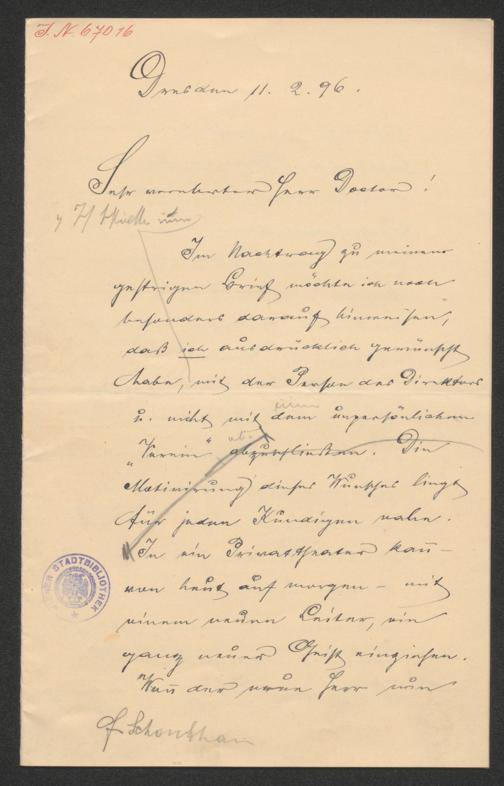 J. N. 67016
Dresden 11. 2. 96.
Sehr verehrter Herr Doctor!
Im Nachtrag zu meinem
gestrigen Brief möchte ich noch
besonders darauf hinweisen,
daß ich ausdrücklich gewünscht
habe, mit der Person des Direktors
u. nicht mit dem unpersönlichen
einem
"Verein" abzuschließen. Die
Motivierung dieses Wunsches liegt
für jeden Kundigen nahe.
In ein Privattheater kan̄ –
von heut auf morgen – mit
einem neuen Leiter, ein
ganz neuer Geist einziehen.
Wen̄ der neue Herr nun
STADTBIBLIOTHEK
f. Schönthan